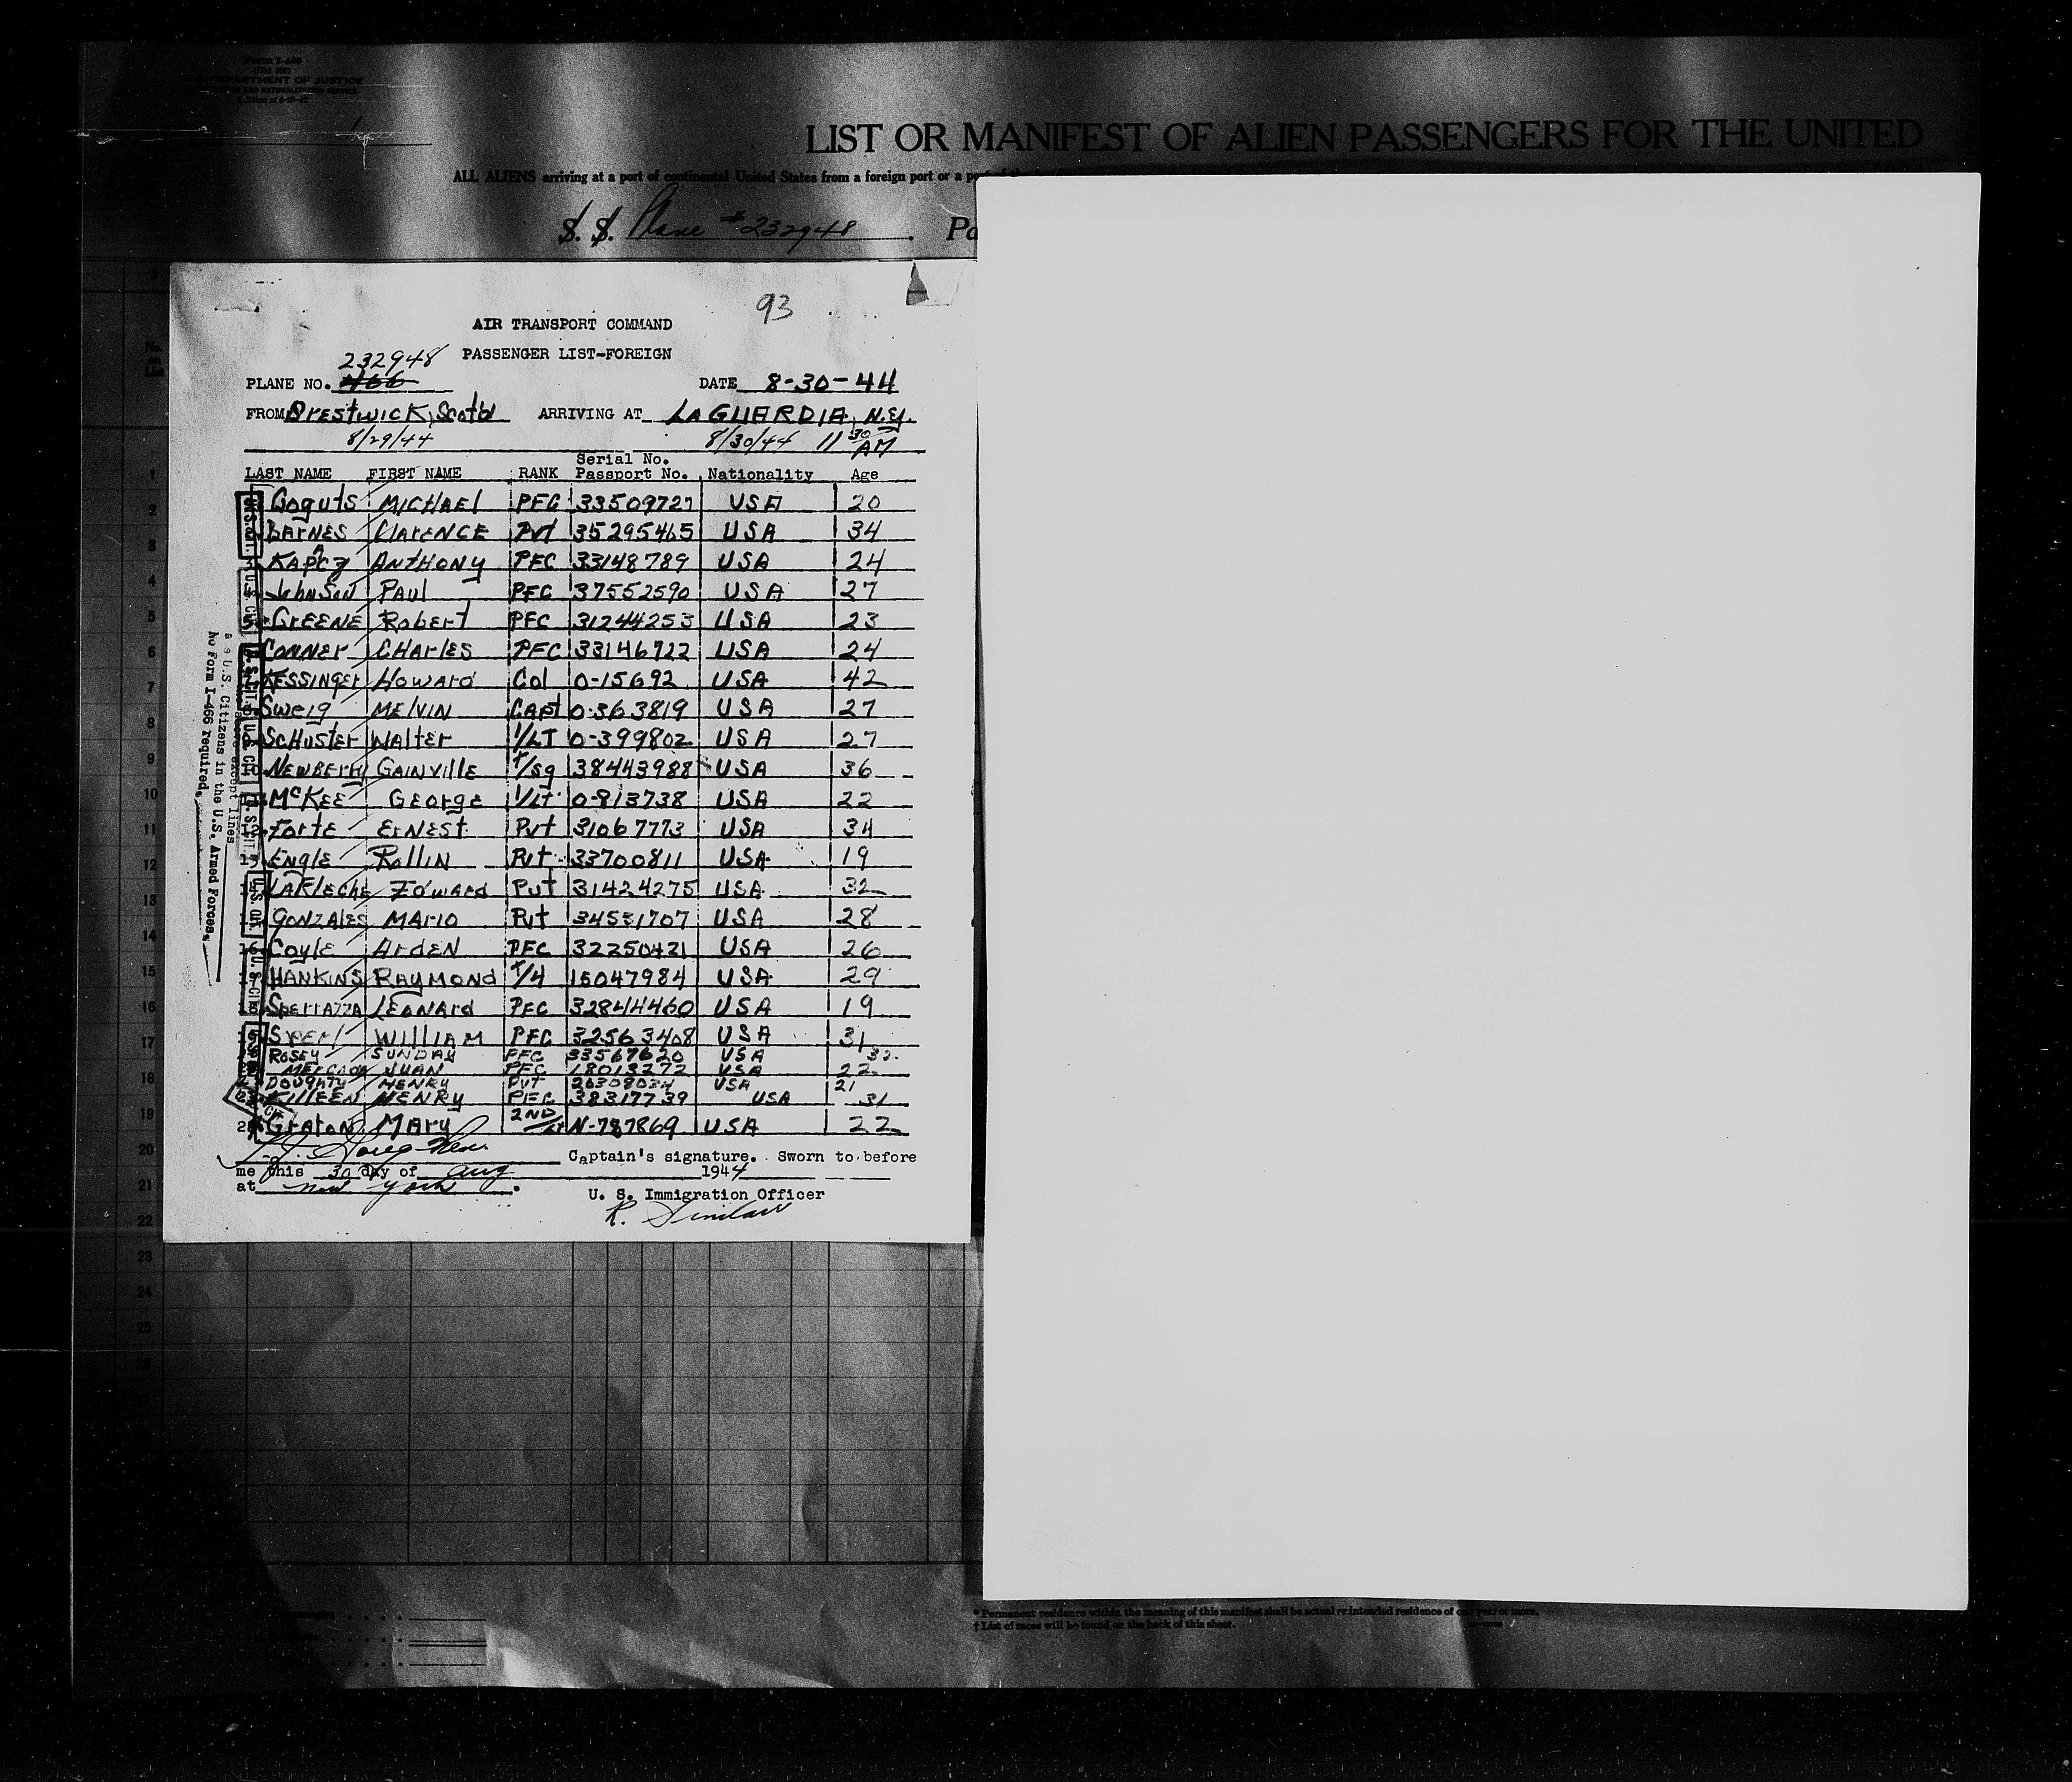 Form I-489
DEPARTMENT OF JUSTICE
AND NATURALIZATION SERVICE
LIST OR MANIFEST OF ALIEN PASSENGERS FOR THE UNITED
ALL ALIENS arriving at a port of continental United States from a foreign port or a
S. S. Plane #232948
93
AIR TRANSPORT COMMAND
PASSENGER LIST-FOREIGN
232948
PLANE NO. 466 DATE 8-30-44
FROM Prestwick, Scot'd ARRIVING AT LAGUARDIA, N.Y.
8/29/44 8/30/44 11 30 AM
LAST NAME FIRST NAME RANK Serial No. Passport No. Nationality Age
Goguts MICHAEL PFC 33509727 USA 20
BARNES CLARENCE Pvt 35295465 USA 34
KAPACZ ANTHONY PFC 33148789 USA 24
Johnson PAUL PFC 37552590 USA 27
5 GREENE Robert PFC 31244253 USA 23
CONNER CHARLES PFC 33146722 USA 24
KESSINGER HOWARD Col 0-15692 USA 42
Sweig MELVIN CAPT 0-363819 USA 27
SCHUSTER WALTER 1/LT 0-399802 USA 27
10 NEWBERRY GAINVILLE T/Sg 38443988 USA 36
McKEE GEORGE 1/LT 0-813738 USA 22
12 Forte ERNEST Pvt 31067773 USA 34
13 ENGLE ROLLIN Pvt 33700811 USA 19
LAFLECHE EDWARD Pvt 31424275 USA 32
GONZALES MARIO Pvt 34531707 USA 28
16 Coyle ARDEN PFC 32250421 USA 26
HANKINS RAYMOND T/4 15047984 USA 29
18 SPERRAZZA LEONARD PFC 32844460 USA 19
Sperl WILLIAM PFC 32563408 USA 31
ROSEY SUNDAY PFC 33567620 USA 32
MERCADO JUAN PFC 18013272 USA 22
DOUGHTY HENRY Pvt 20308034 USA 21
KILLEEN HENRY PFC 38317739 USA 31
GRATON MARY 2ND/Lt N-787869 USA 22
Captain's signature. Sworn to before
me this 30 day of Aug 1944
at New York.
U. S. Immigration Officer
R. Sinclair
except lines
U.S. Citizens in the U.S. Armed Forces.
No Form I-466 required.
U.S. CIT.
U.S. CIT.
U.S. CIT.
U.S. CIT.
U.S. CIT.
No. on List
1
2
3
4
5
6
7
8
9
10
11
12
13
14
15
16
17
18
19
20
21
22
23
24
25
26
* Permanent residence within the meaning of this manifest shall be actual or intended residence of one year or more.
† List of races will be found on the back of this sheet.